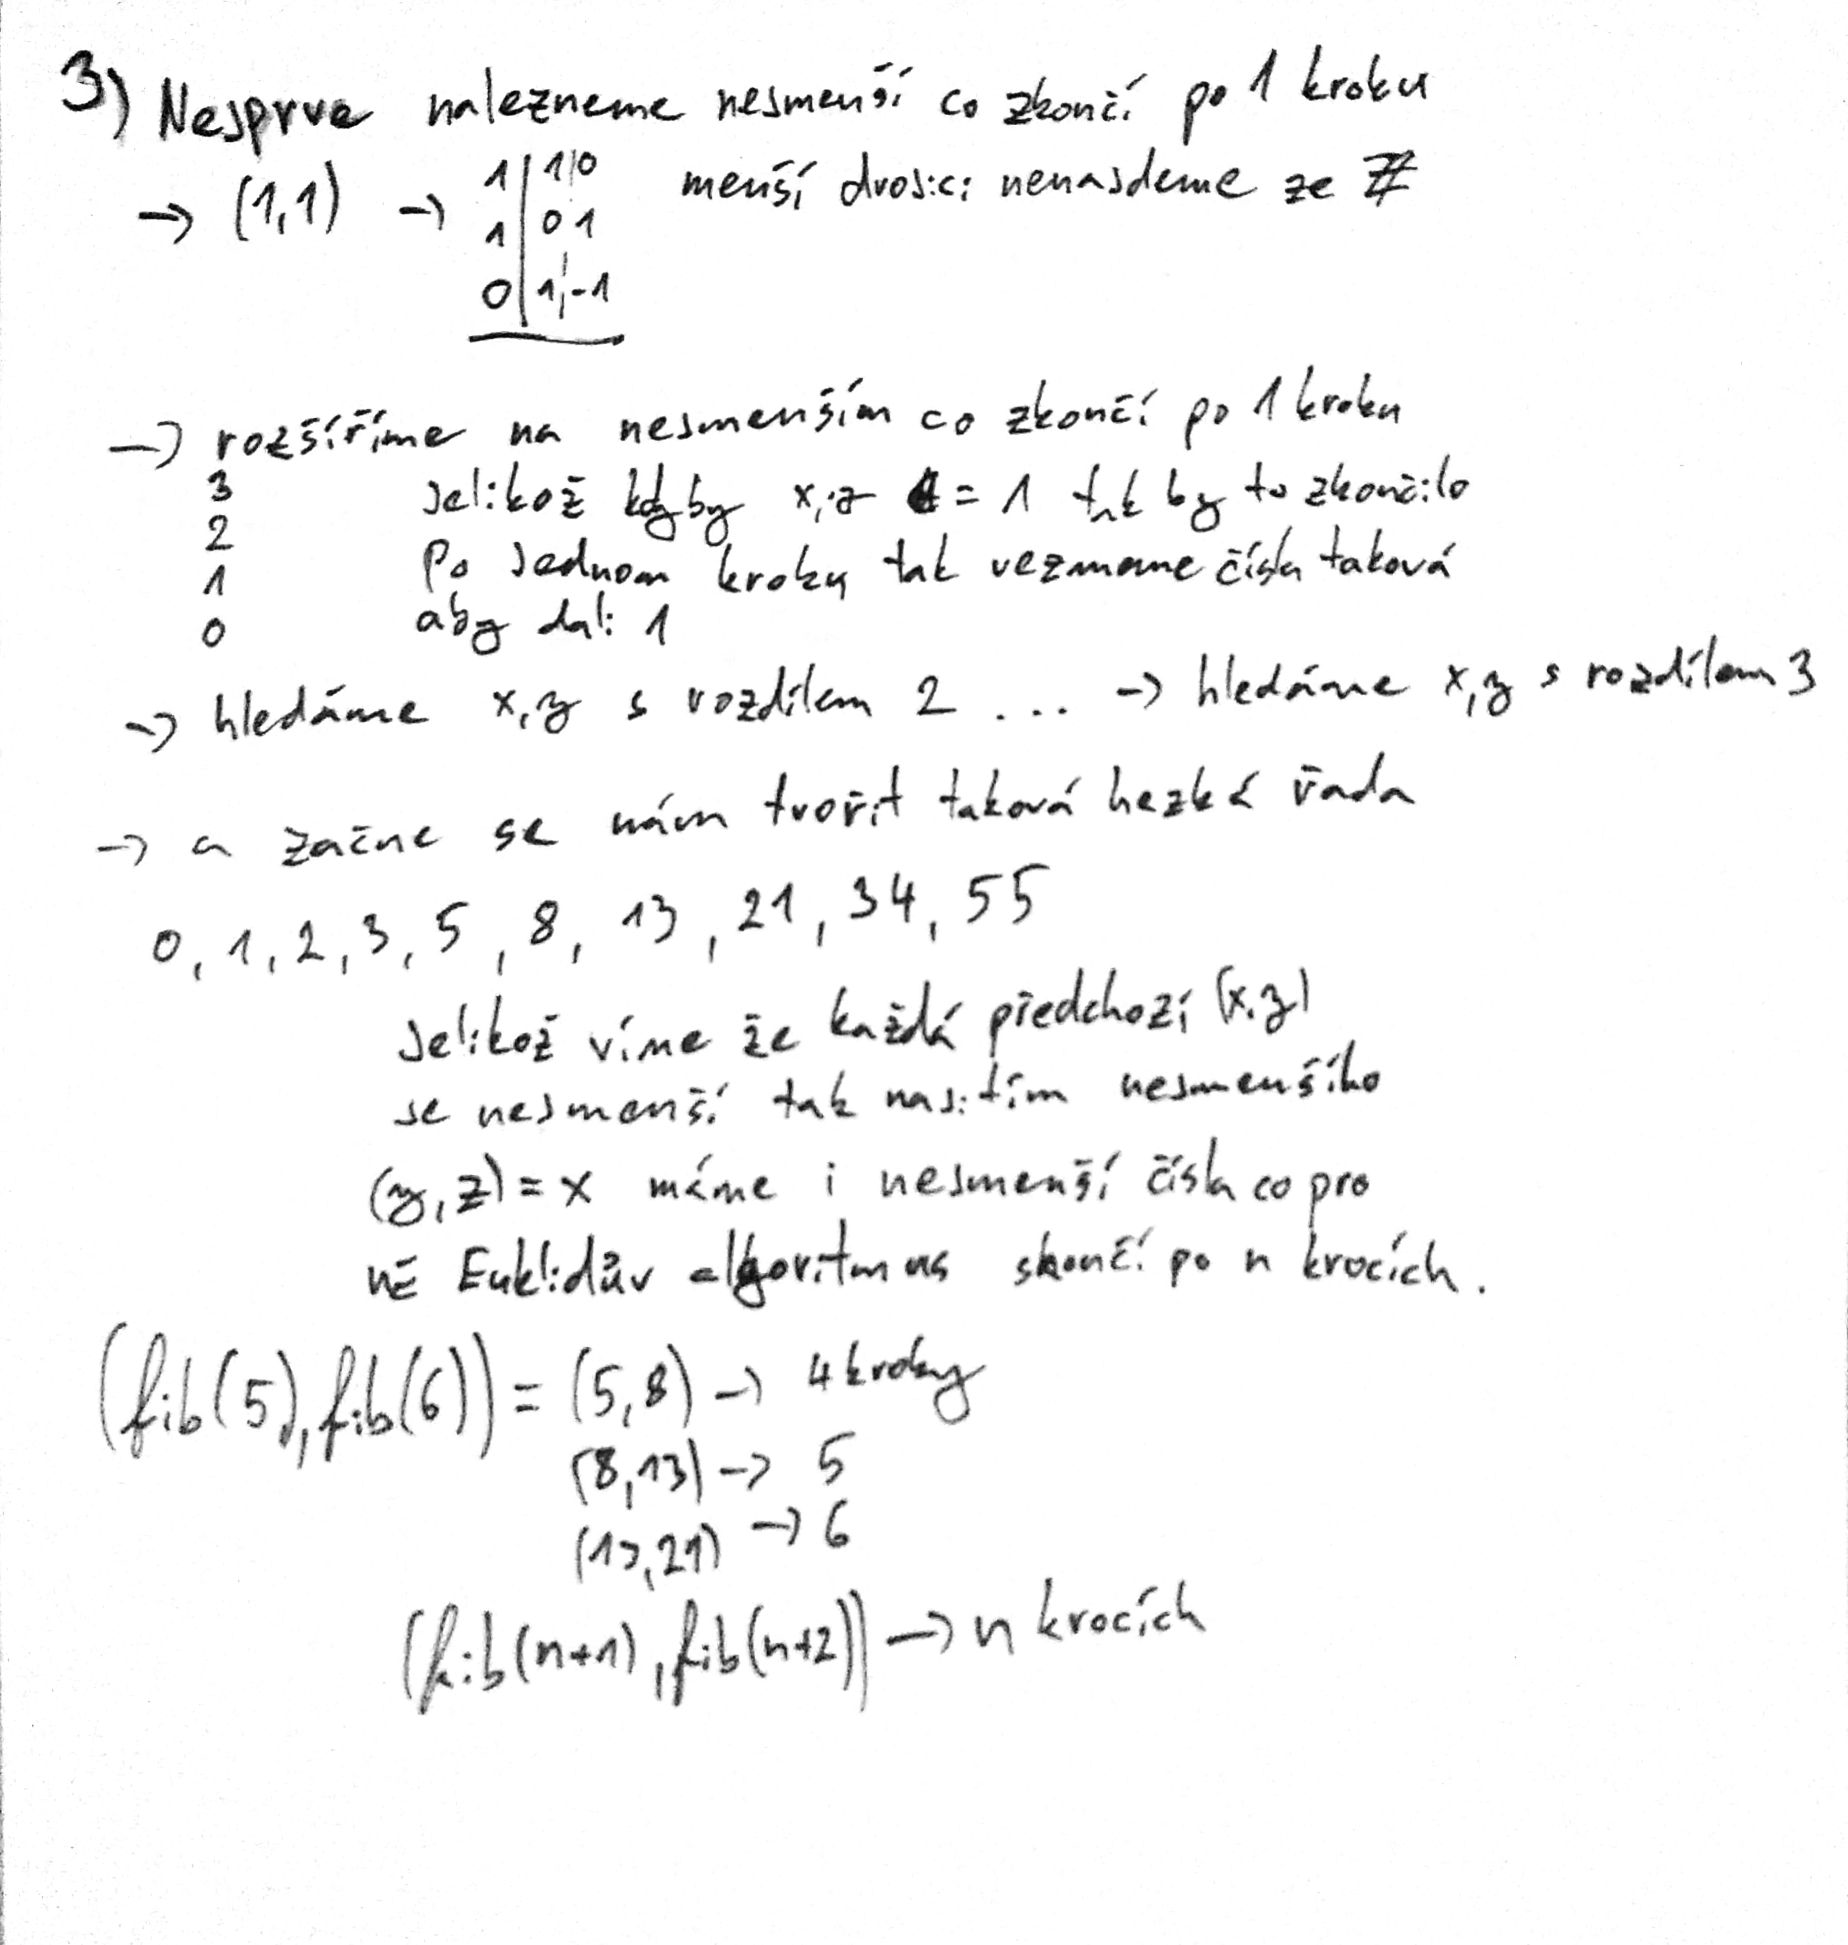 3) Nejprve nalezneme nejmenší co zkončí po 1 kroku
→ (1,1) → 1 | 1 0 menší dvojici nenajdeme ze Z
1 | 0 1
0 | 1, -1
→ rozšíříme na nejmenším co zkončí po 1 kroku
3 Jelikož kdyby x,y = 1 tak by to zkončilo
2 Po jednom kroku tak vezmeme čísla taková
1 aby dali 1
0
→ hledáme x,y s rozdílem 2 ... → hledáme x,y s rozdílem 3
→ a začne se nám tvořit taková hezká řada
0, 1, 2, 3, 5, 8, 13, 21, 34, 55
Jelikož víme že každá předchozí (x,y)
je nejmenší tak najitím nejmenšího
(y,z) = x máme i nejmenší čísla co pro
ně Euklidův algoritmus skončí po n krocích.
(fib(5), fib(6)) = (5,8) → 4 kroky
(8,13) → 5
(13,21) → 6
(fib(n+1), fib(n+2)) → n krocích